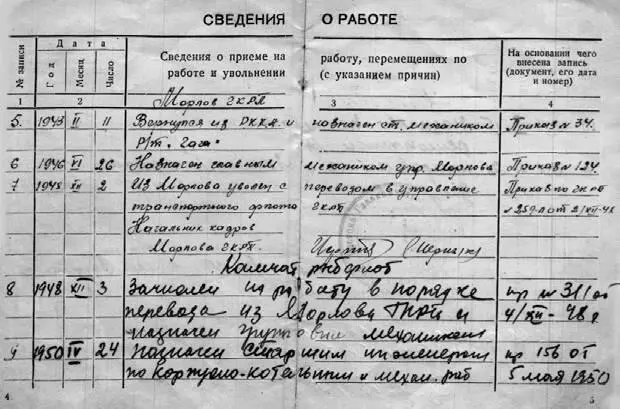 СВЕДЕНИЯ О РАБОТЕ
№ записи
Дата
Год
Месяц
Число
Сведения о приеме на работу, перемещениях по
работе и увольнении (с указанием причин)
На основании чего
внесена запись
(документ, его дата
и номер)
1 2 3 4
Морлов
5. 1943 II 11 Вернулся из РККА и назначен ст. механиком Приказ № 34.
6 1946 VI 26 Назначен главным механиком упр. Морлова Приказ № 124.
7 1948 XII 2 Из Морлова уволен с переводом в управление Приказ по
транспортного флота
Начальник кадров
Морлова
8 1948 XII 3 Зачислен на работу в порядке пр № 311 от
перевоза из Морлова и 4/XII-48 г
назначен групповым механиком
9 1950 IV 24 Назначен старшим инженером пр 156 от
по корпусно-котельным и механ. раб 5 мая 1950
4 5